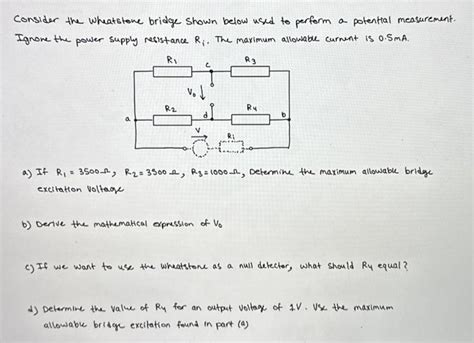 Consider the Wheatstone bridge shown below used to perform a potential measurement.
Ignore the power supply resistance Ri. The maximum allowable current is 0.5mA.
R1
c
R3
Vo
R2
d
R4
a
b
V
Ri
a) If R1 = 3500Ω, R2=3500Ω, R3=1000Ω, Determine the maximum allowable bridge
excitation voltage
b) Derive the mathematical expression of Vo
c) If we want to use the wheatstone as a null detector, what should R4 equal?
d) Determine the value of R4 for an output voltage of 1V. Use the maximum
allowable bridge excitation found in part (a)